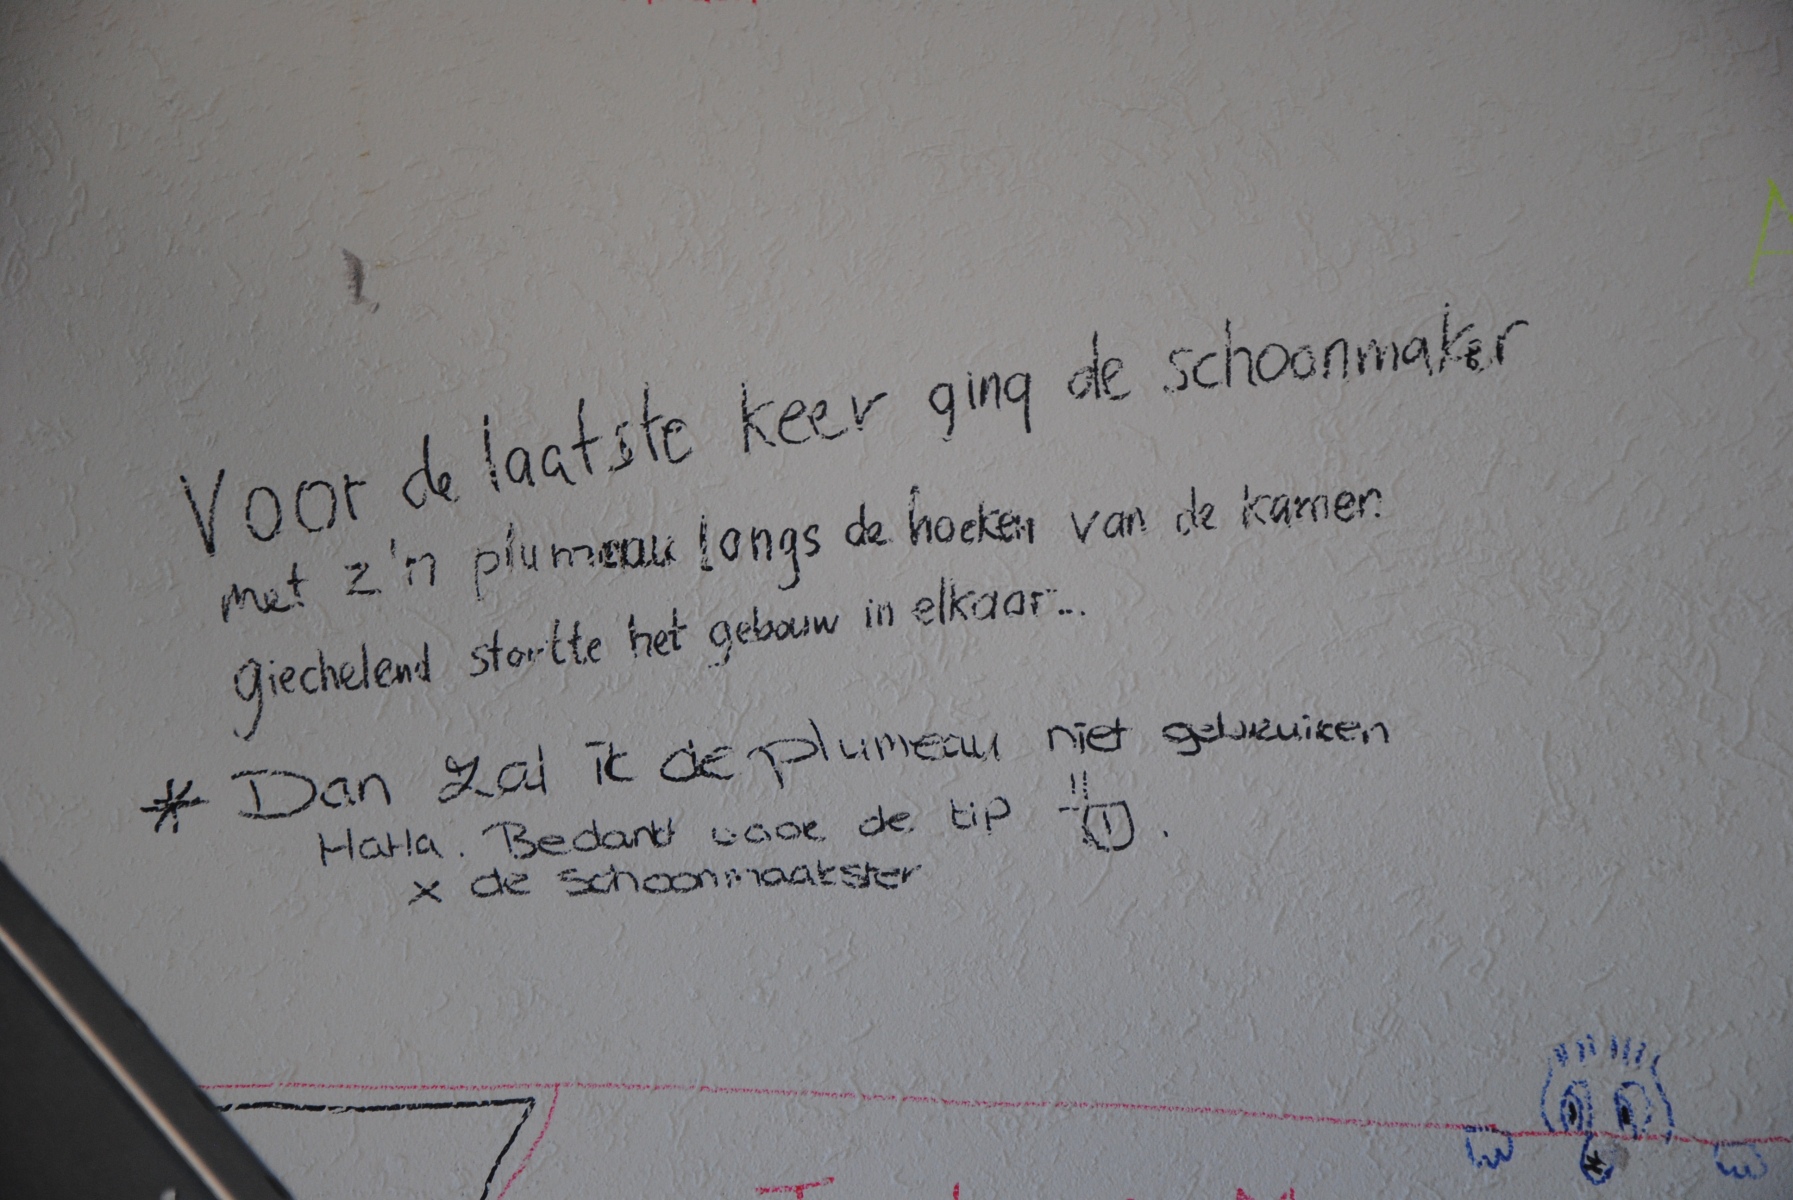 Voor de laatste keer ging de schoonmaker
met z'n plumeau langs de hoeken van de kamer.
giechelend stortte het gebouw in elkaar...
* Dan zal ik de plumeau niet gebruiken
Haha. Bedankt voor de tip
x de schoonmaakster